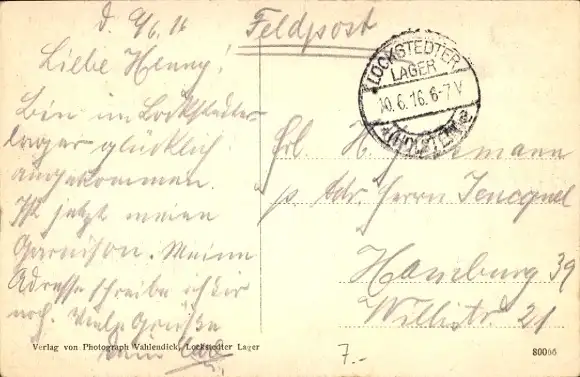 d. 9/6. 16
Feldpost
Liebe Henny!
Bin im Lockstedter-
lager glücklich
angekommen.
Ist jetzt meine
Garnison. Meine
Adresse schreibe ich dir
noch. Viele Grüße
dein
LOCKSTEDTER
LAGER
10.6.16.6-7V
Frl. H.
p. Adr. Herrn
Hamburg 39
Willistr. 21
Verlag von Photograph Wahlendick, Lockstedter Lager
7.-